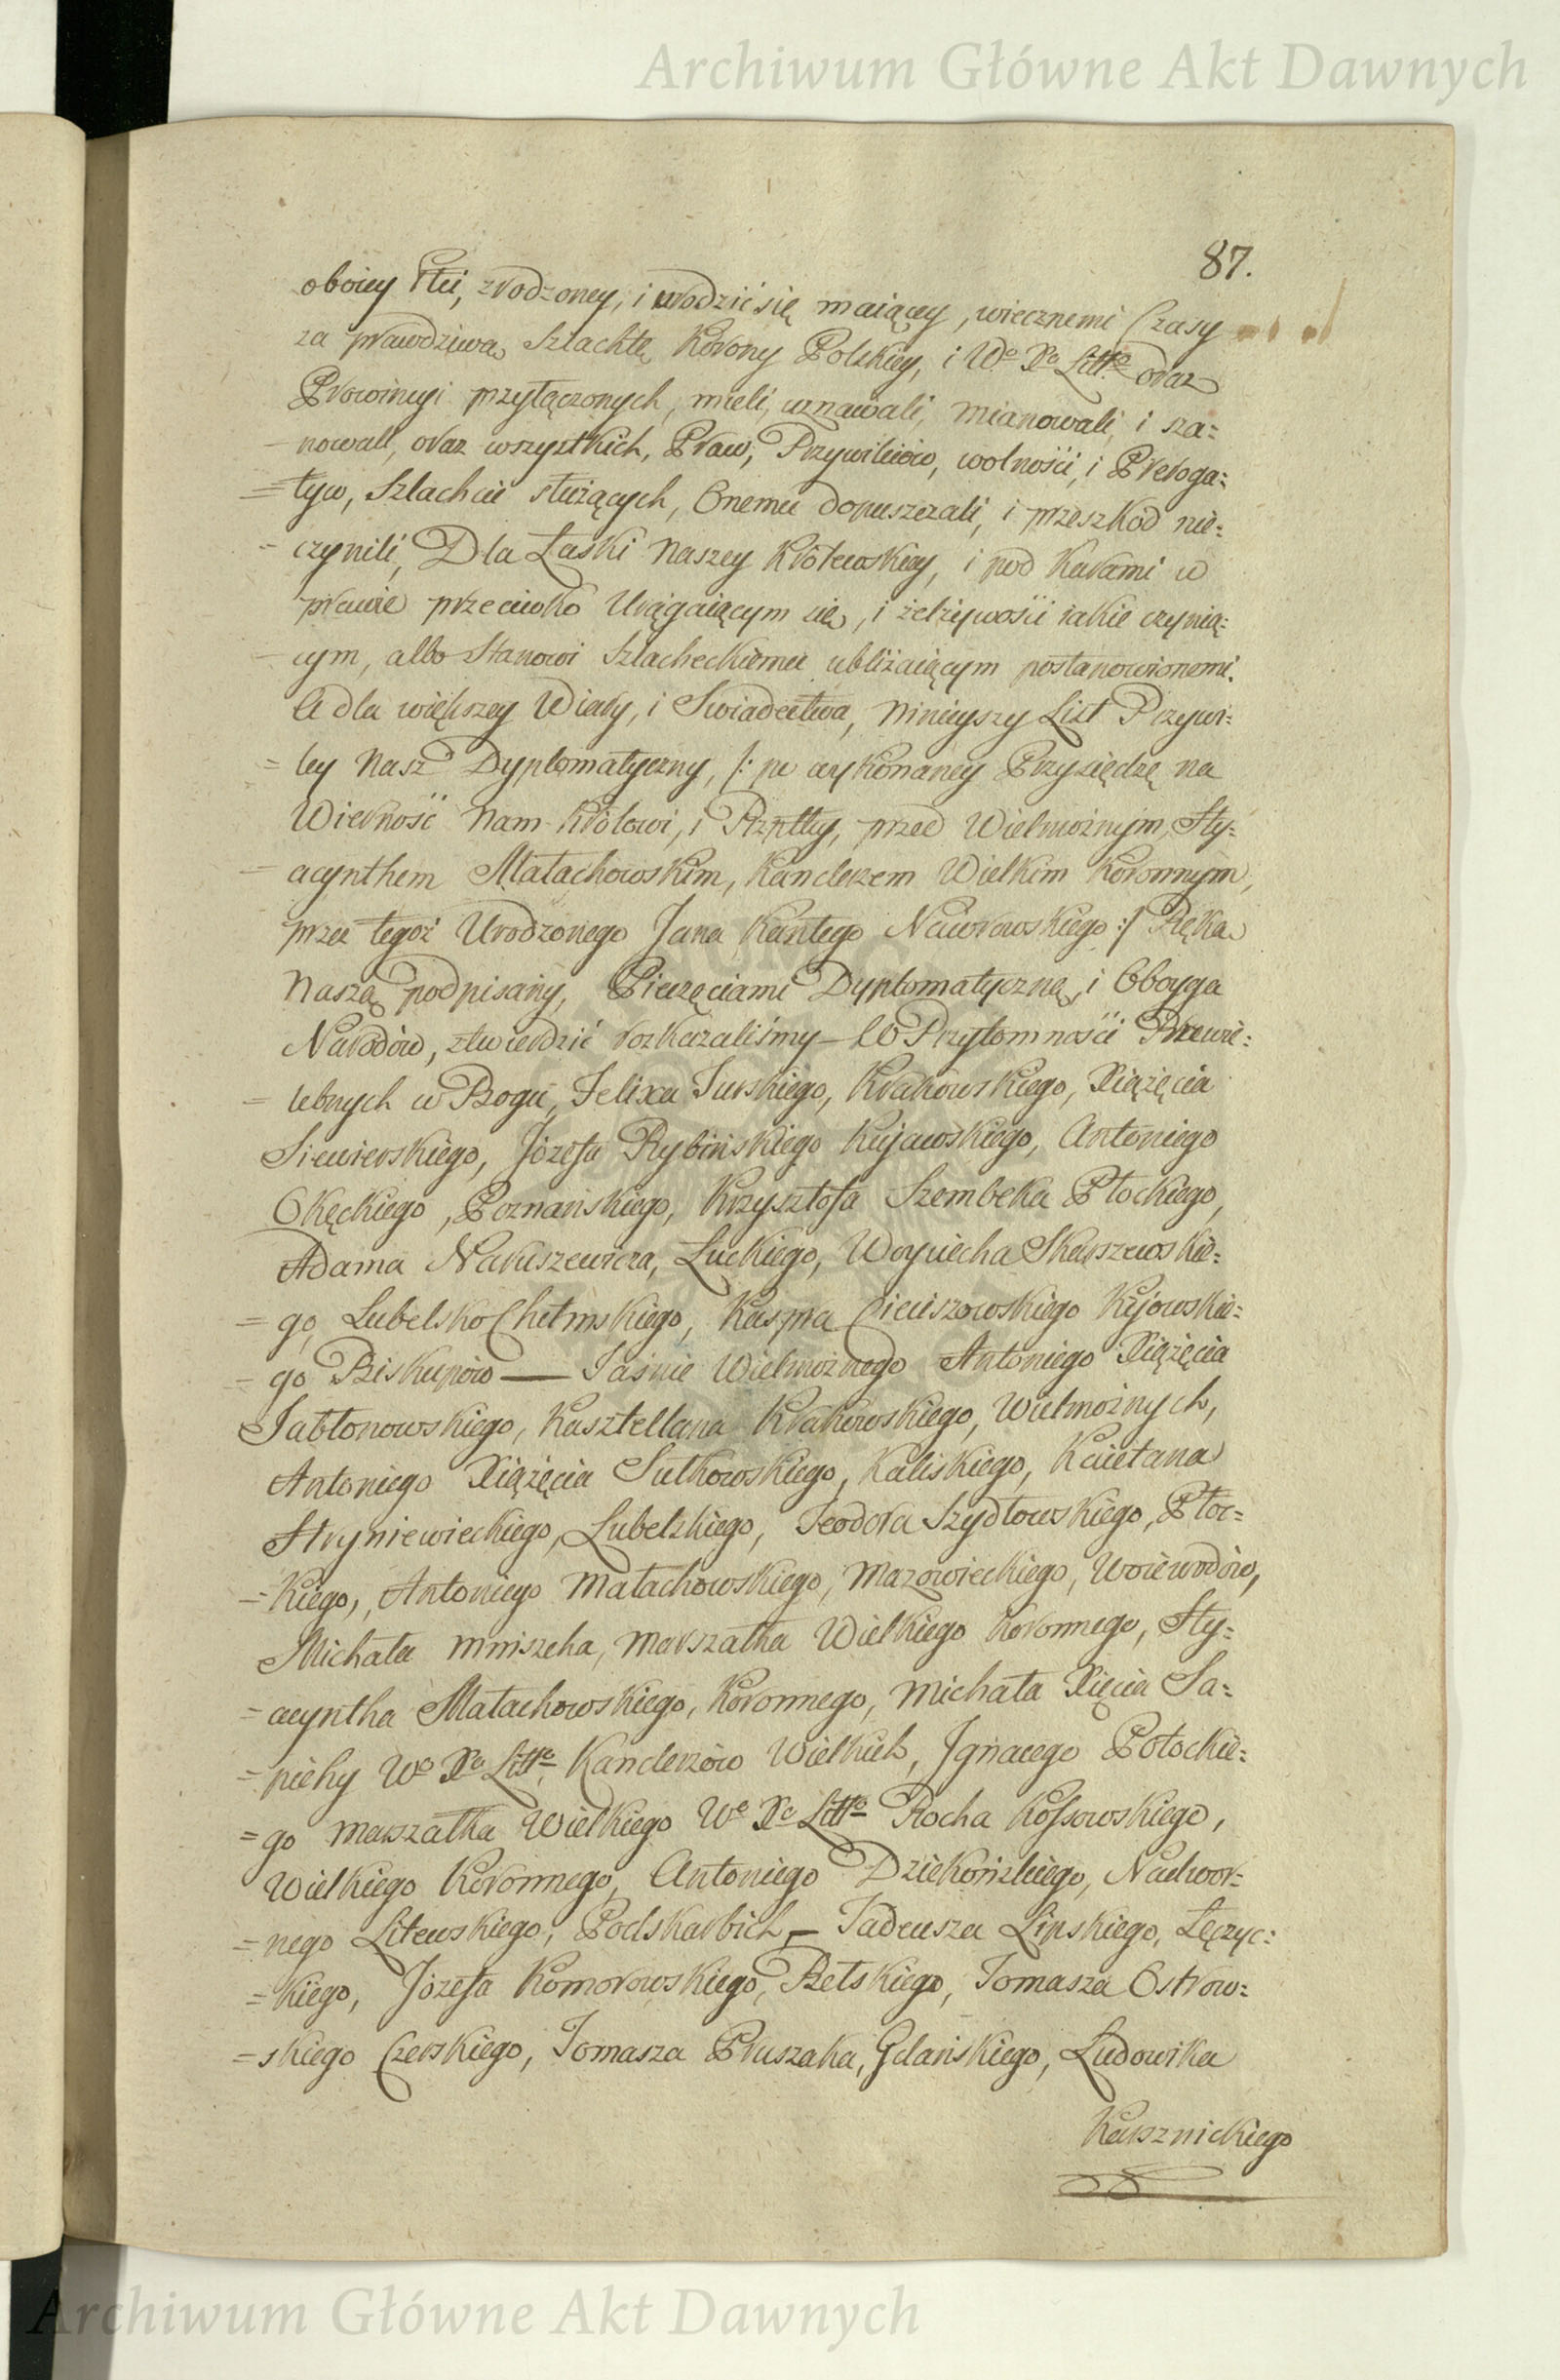 Archiwum Główne Akt Dawnych
87.
oboiey Płci, zrodzoney, i urodzić się maiącey, wiecznemi Czasy
za prawdziwą Szlachtę Korony Polskiey, i Wo Xa Littgo oraz
Prowincyi przyłączonych, mieli, uznawali, mianowali, i sza=
nowali, oraz wszystkich, Praw, Przywileiów, wolności, i Preroga=
=tyw, Szlachcie służących, Onemu dopuszczali, i przeszkod nie=
=czynili, Dla Łaski Naszey Królewskiey, i pod Karami w
prawie przeciwko Urągaiącym się, i żelżywości iakie czynią=
cym, albo Stanowi Szlacheckiemu ubliżaiącym postanowionemi.
A dla większey Wiary, i Swiadectwa, Ninieyszy List Przywi=
=ley Nasz Dyplomatyczny, /: po wykonaney Przysiędze na
Wierność Nam Królowi, i Rzpltey, przed Wielmożnym, Hy=
acynthem Małachowskim, Kanclerzem Wielkim Koronnym,
przez tegoż Urodzonego Jana Kantego Nawrowskiego :/ Ręką
Naszą podpisany, Pieczęciami Dyplomatyczną, i Oboyga
Narodów, ztwierdzić rozkazaliśmy — W Przytomności Przewie=
=lebnych w Bogu, Felixa Turskiego, Krakowskiego, Xiążęcia
Siewierskiego, Józefa Rybińskiego Kujawskiego, Antoniego
Okęckiego, Poznańskiego, Krzysztofa Szembeka Płockiego,
Adama Naruszewicza, Łuckiego, Woyciecha Skarszewskie=
=go, Lubelsko Chełmskiego, Kaspra Cieciszowskiego Kijowskie=
=go Biskupów — Jaśnie Wielmożnego Antoniego Xiążęcia
Jabłonowskiego, Kasztellana Krakowskiego, Wielmożnych,
Antoniego Xiążęcia Sułkowskiego, Kaliskiego, Kaietana
Hryniewieckiego, Lubelskiego, Teodora Szydłowskiego, Płoc=
=kiego, Antoniego Małachowskiego, Mazowieckiego, Woiewodów,
Michała Mniszcha, Marszałka Wielkiego Koronnego, Hy=
=acyntha Małachowskiego, Koronnego, Michała Xięcia Sa=
=piehy Wo Xa Littgo Kanclerzów Wielkich, Jgnacego Potockie=
=go Marszałka Wielkiego Wo Xa Littgo Rocha Kossowskiego,
Wielkiego Koronnego, Antoniego Dziekońskiego, Nadwor=
=nego Litewskiego, Podskarbich, — Tadeusza Lipskiego, Łęczyc=
=kiego, Józefa Komorowskiego, Bełskiego, Tomasza Ostrow=
=skiego Czerskiego, Tomasza Pruszaka, Gdańskiego, Ludowika
Karsznickiego
Archiwum Główne Akt Dawnych